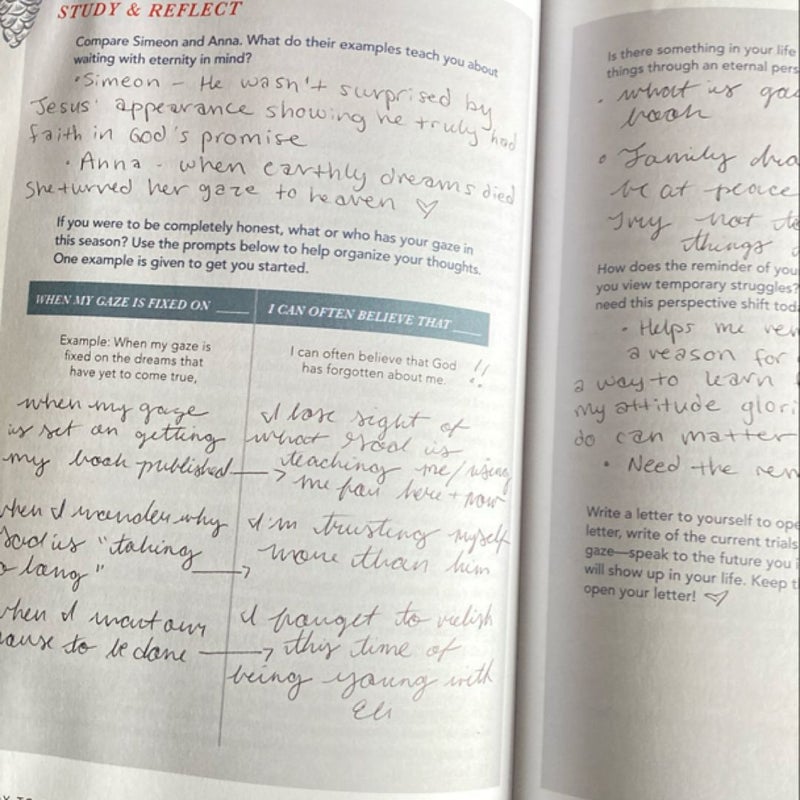 STUDY & REFLECT
Compare Simeon and Anna. What do their examples teach you about
waiting with eternity in mind?
• Simeon - He wasn't surprised by
Jesus' appearance showing he truly had
faith in God's promise
• Anna - when earthly dreams died
she turned her gaze to heaven ♡
If you were to be completely honest, what or who has your gaze in
this season? Use the prompts below to help organize your thoughts.
One example is given to get you started.
WHEN MY GAZE IS FIXED ON ____
I CAN OFTEN BELIEVE THAT ____
Example: When my gaze is
fixed on the dreams that
have yet to come true,
I can often believe that God
has forgotten about me. !!
when my gaze
is set on getting
my book published →
I lose sight of
what God is
teaching me/using
me for here + now
when I wonder why
God is "taking
so long" →
I'm trusting myself
more than him
when I want our
house to be done →
I forget to relish
this time of
being young with
Eli
Is there something in your life
things through an eternal pers
• what is
book
• Family
be at peace
Try not to
things
How does the reminder of you
you view temporary struggles?
need this perspective shift tod
• Helps me
a reason for
a way to learn
my attitude glori
do can matter
• Need the
Write a letter to yourself to ope
letter, write of the current trials
gaze—speak to the future you
will show up in your life. Keep t
open your letter! ♡